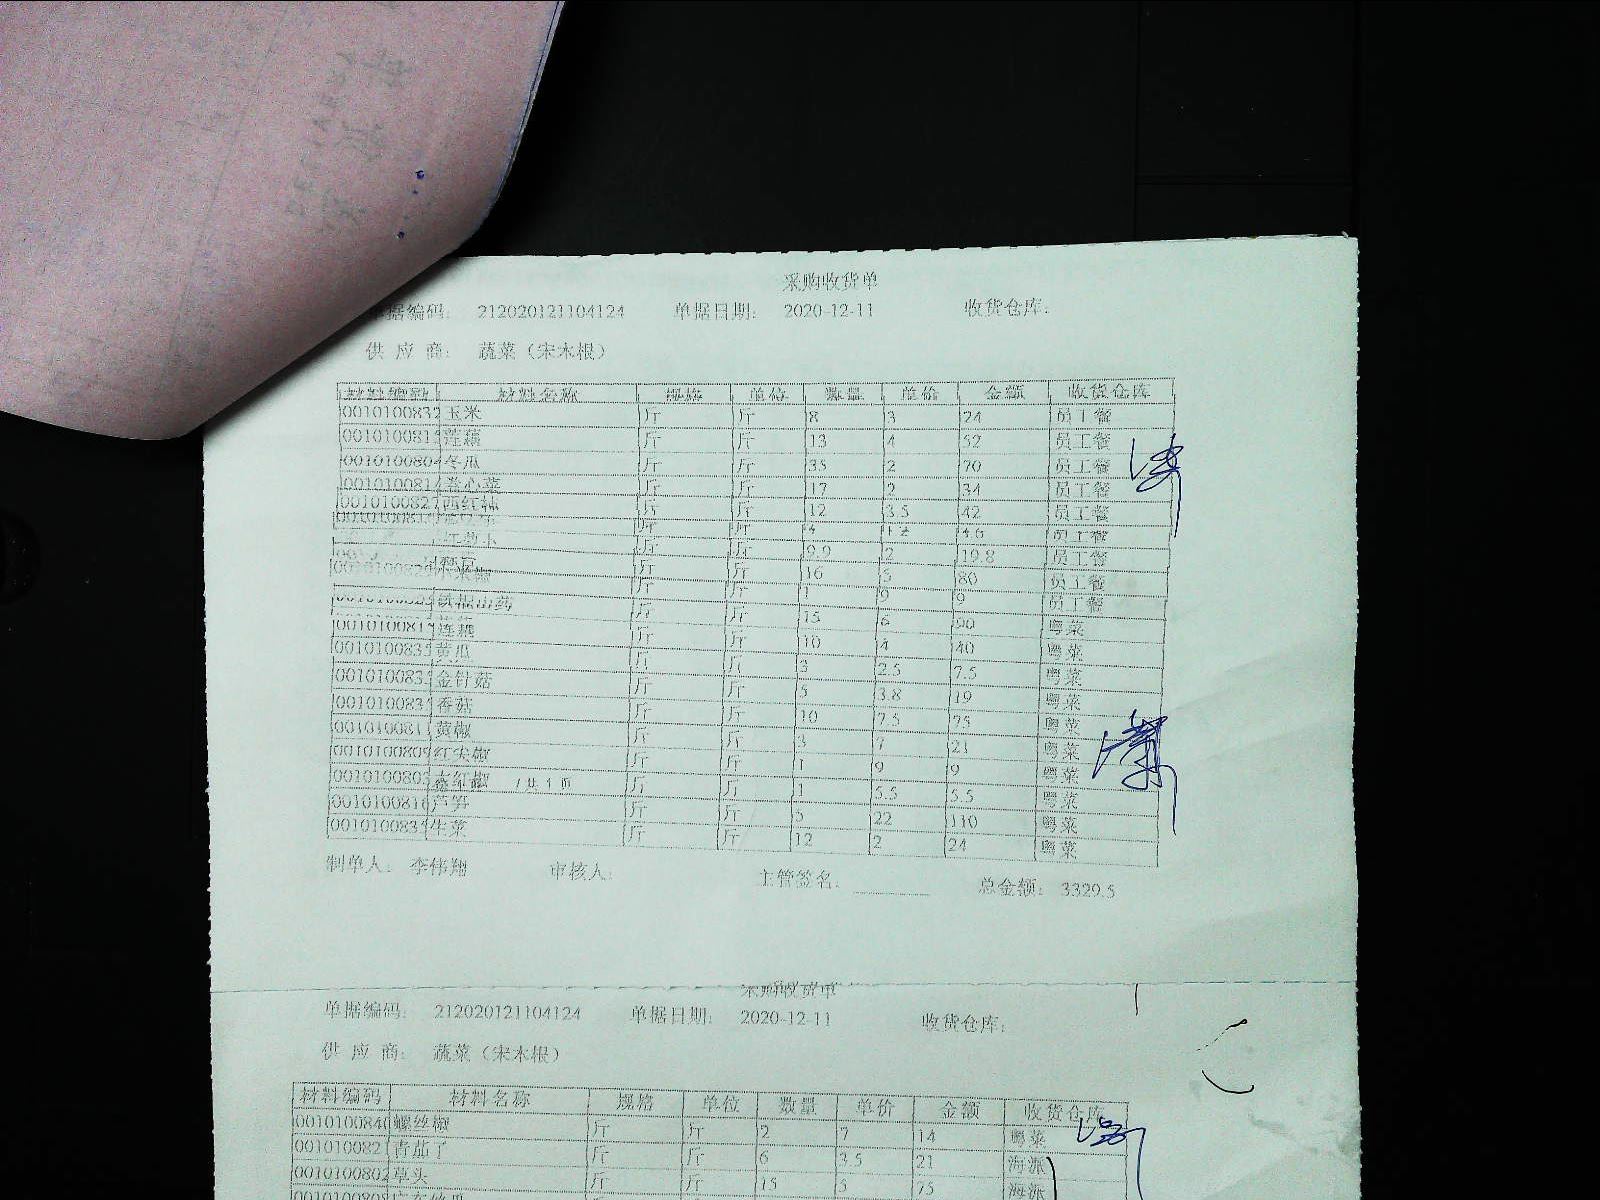 采购收货单
单据编码： 212020121104124 单据日期： 2020-12-11 收货仓库：
供 应 商： 蔬菜（宋木根）
材料编码 材料名称 规格 单位 数量 单价 金额 收货仓库
0010100832 玉米 斤 斤 8 3 24 员工餐
001010081 莲藕 斤 斤 13 4 52 员工餐
0010100804 冬瓜 斤 斤 35 2 70 员工餐
001010081 卷心菜 斤 斤 17 2 34 员工餐
001010082 西红柿 斤 斤 12 3.5 42 员工餐
斤 斤 4 4.6 员工餐
斤 斤 9.9 2 19.8 员工餐
斤 斤 16 5 80 员工餐
小米椒 斤 斤 1 9 9 员工餐
铁棍山药 斤 斤 15 6 90 粤菜
001010081 莲藕 斤 斤 10 4 40 粤菜
001010083 黄瓜 斤 斤 3 2.5 7.5 粤菜
001010083 金针菇 斤 斤 5 3.8 19 粤菜
001010083 香菇 斤 斤 10 7.5 75 粤菜
001010081 黄椒 斤 斤 3 7 21 粤菜
0010100809 红尖椒 斤 斤 1 9 9 粤菜
001010080 大红椒 / 共 1 页 斤 斤 1 5.5 5.5 粤菜
0010100816 芦笋 斤 斤 5 22 110 粤菜
001010083 生菜 斤 斤 12 2 24 粤菜
制单人： 李伟翔 审核人： 主管签名： 总金额： 3329.5
采购收货单
单据编码： 212020121104124 单据日期： 2020-12-11 收货仓库：
供 应 商： 蔬菜（宋木根）
材料编码 材料名称 规格 单位 数量 单价 金额 收货仓库
001010084 螺丝椒 斤 斤 2 7 14 粤菜
001010082 青茄子 斤 斤 6 3.5 21 海派
0010100802 草头 斤 斤 15 5 75 海派